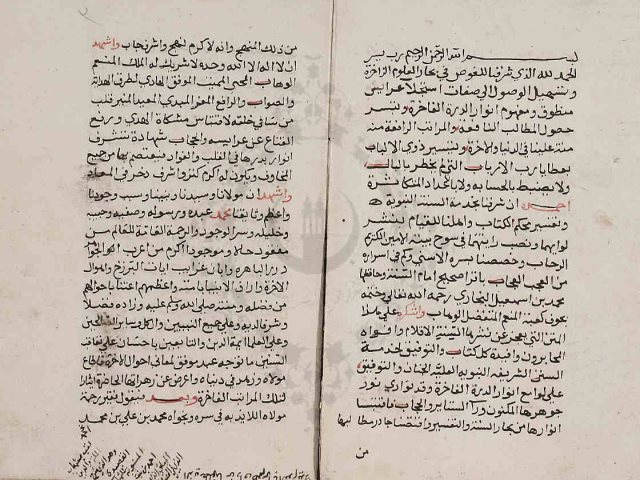 بسم الله الرحمن الرحيم رب يسر
الحمد لله الذي شرفنا للغوص في بحار العلوم الزاخرة
وتسهيل الوصول الى صفات استجلاء عرايس
منطوق ومفهوم انوار الدرة الفاخرة وتيسر
حصول المطالب النافعة والمراتب الرافعة منه
منة علينا في الدنيا والاخرة وتيسير ذوى الالباب
بعطايا رب الارباب التي لم يخطر بالبال
ولا ينضبط بالحساب ولا بالاعداد المتكاثرة
احمده ان شرفنا بخدمة السنة النبوية
وتفسير محكم الكتاب واهلنا للقيام بنشر
لوايهما ونصب رايتهما في سوح بيته الامين الكريم
الرحاب وخصصنا بسره الاسنى ولم في اسراره
من العجب العجاب باثر صحيح امام السنة وحافظها
محمد بن اسمعيل البخاري رحمه الله تعالى وختمه
بجوف كعبة المنعم المتفضل الوهاب واشكره على هذا
المنن التي تعجز عن نشرها السنة الاقلام وافواه
المحابر وان وافية كل كتاب والتوفيق لخدمة
السنن الشريفة النبوية اهلية الجنان والتوفيق
على لوامع انوار الدرة الفاخرة وقد توارى نور
جوهرها المكنون ورآء الستاير والحجاب فاقتبسنا
انوارها من بحار السنة والتفسير واقتنصنا جآذر مطالبها
من
من ذلك المنهج وانه لاكرم نهج واشرف جناب واشهد
ان لا اله الا الله وحده لا شريك له الملك المنعم
الوهاب المحيي المميت الموفق الهادي لطرق الهداية
والصواب والرافع المعز المبدي المعيد المنير قلب
من شا في خلقه لاقتباس مشكاة الهدى ورفع
القناع عن عرايسه والحجاب شهادة تشرف
انوار بدرها في القلب والفواد ويعتصم بها من جميع
المخاوف ويكون له اكرم كنز واشرف ذخر في المعاد
واشهد ان مولانا وسيدنا ونبينا وسبب وجودنا
واعظم وثايقنا محمد عبده ورسوله وصفيه وحبيبه
وخليله وسر الوجود والرحمة القاعمة للعالم من
مفقود حالا وموجود اكرم من اعرب
درر الباهره وابان غرايب ايات البرزخ واهوال
الاخرة وارث الانبيا بامته واعظمهم اعتناء باحوالهم
من فضله ومنته صلى الله وسلم عليه وزاده فضلا
وشرفا لديه وعلى جميع النبيين وآل كل وساير الصالحين
وعلى العلما ايمة الدين والتابعين باحسان على تعاقب
السنين ما توجه عبد موفق لمعاني احوال الاخرة فاطاع
مولاه وزهد في دنياه واعرض عن زهراتها الحاضرة ايثارا
لتلك المراتب الفاخرة وبعد فيقول فقير رحمة
مولاه اللايذ به في سره ونجواه محمد بن علي بن محمد